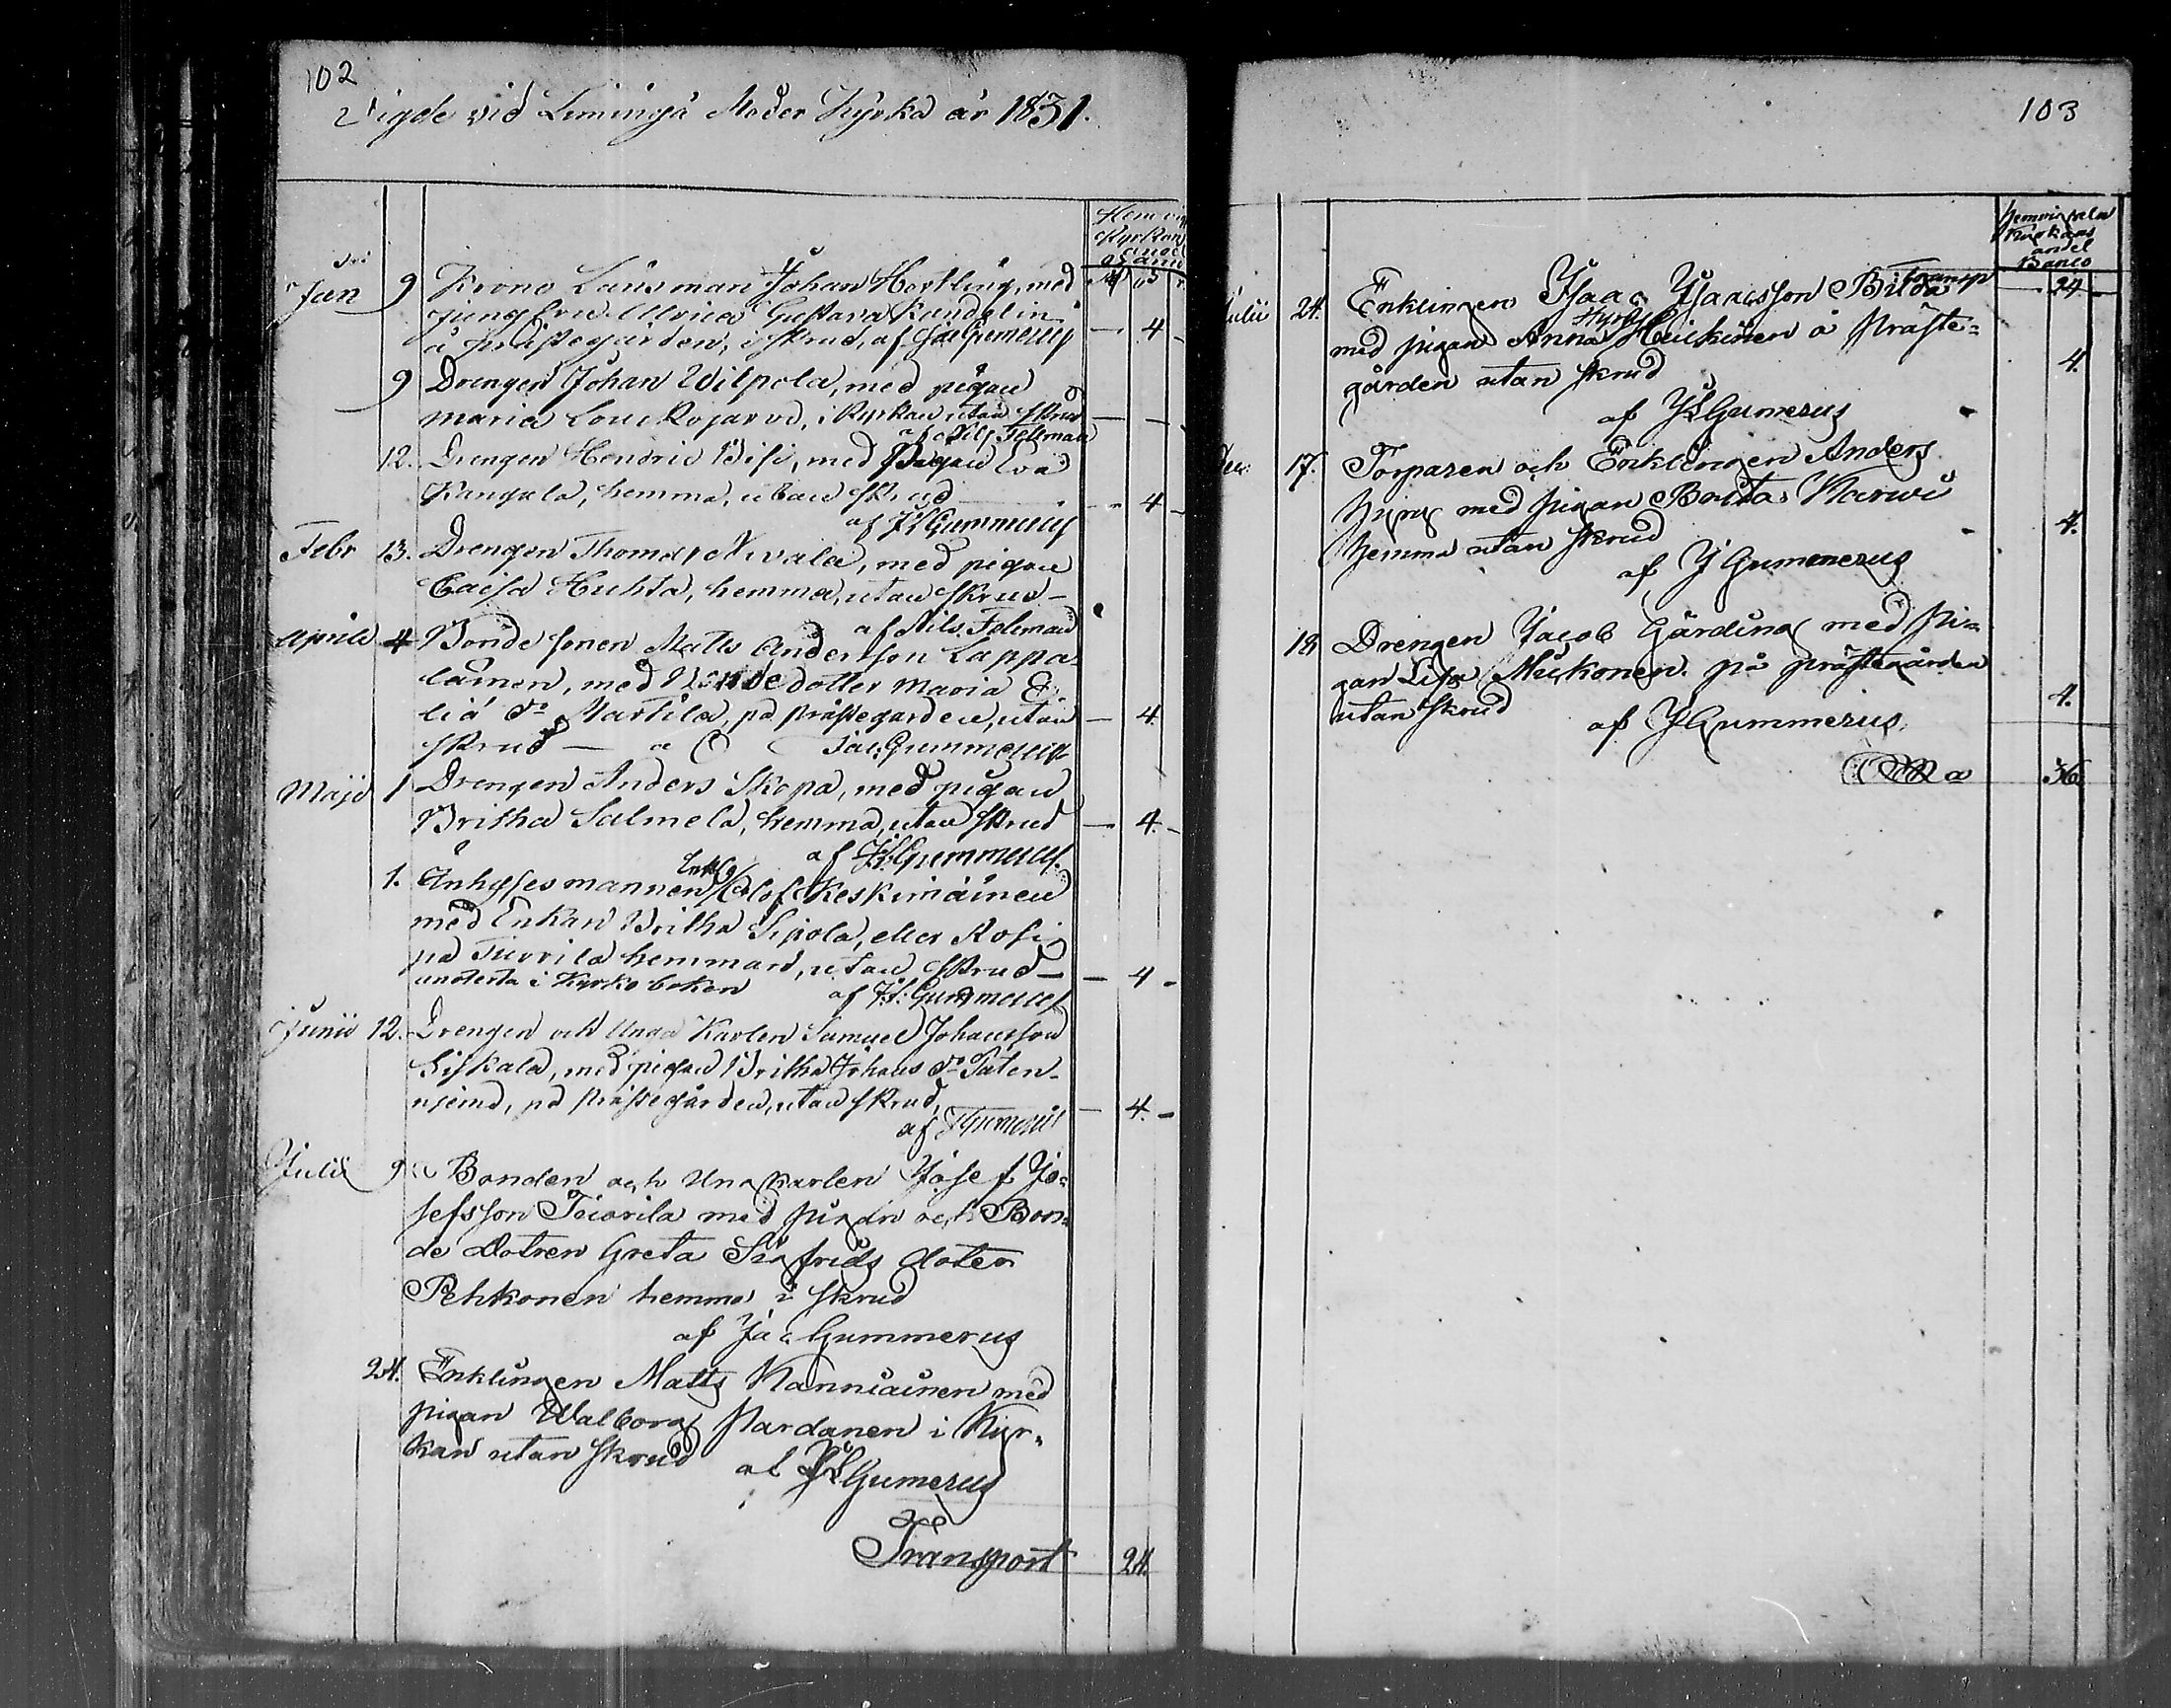 102
Vigde vid Limingå Moder Kyrka år 1831.
Jan 9 Krono Länsman Johan Hortling, med
jungfru Ulrica Gustava Rundelin
å prästegården, i skrud, af Jac Gumerus — 4 -
9 Drengen Johan Wilpola, med pigan
Maria Loukkojarvi, i Kyrkan, utan skrud — — -
af Nils Feleman
12. Drengen Hendric Pisi, med Pigan Eva
Kangala, hemma, utan skrud — 4 -
af Js Gummerus
Febr 13. Drengen Thomas Nivala, med pigan
Caisa Huhta, hemma, utan skrud -
af Nils Feleman
Aprill 4 Bonde sonen Matts Andersson Lappa-
lainen, med Bonde dotter Maria E-
liæ dr Martila, på prästegården, utan — 4
skrud — Jac. Gummerus
Maji 1 Drengen Anders Skopa, med pigan
Britha Salmela, hemma, utan skrud — 4. -
af Js Gummerus.
1. Inhysesmannen Enkl. Olof Keskimäinen
med Enkan Britha Sipola, eller Rosi
på Tuorila hemman, utan skrud —
i Kyrko boken af Js: Gummerus — 4 -
Junii 12. Drengen och Unga Karlen Samuel Johansson
Siskala, med pigan Britha Johans dr Paten-
niemi, på prästegården, utan skrud, — 4. -
af Js Gumerus
Julii 9 Bonden och Ungkarlen Josef Jo=
sefsson Teiorila med pigan och Bon=
de Dotren Greta Sigfrids doter
Pehkonen hemma i skrud
af Jac Gummerus
24. Enklingen Matts Kanniainen med
pigan Walborg Pardanen i Kyr=
kan utan skrud af Js Gumerus
Transport 24.
103
Hemvigselar
Kyrkans
andel
Banco
transp 24
Julii 24. Enklingen Isaac Isacsson Bilda
med pigan Anna Heickinen å Präste=
gården utan skrud 4.
af Js Gumerus
Dec. 17. Torparen och Enklingen Anders
Hyry med pigan Brita Karvi
hemma utan skrud 4.
af J Gummerus
18 Drengen Jacob Gårding med Pi=
gan Lisa Muikonen på prästegården
utan skrud 4.
af J Gummerus.
36